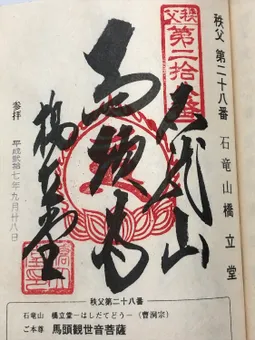 秩父 第二十八番 石竜山橋立堂
秩父
第二拾八番
石龍山
馬頭尊
橋立堂
参拝
平成貮拾七年九月廿八日
秩父第二十八番
石竜山 橋立堂―はしだてどう―(曹洞宗)
ご本尊 馬頭観世音菩薩